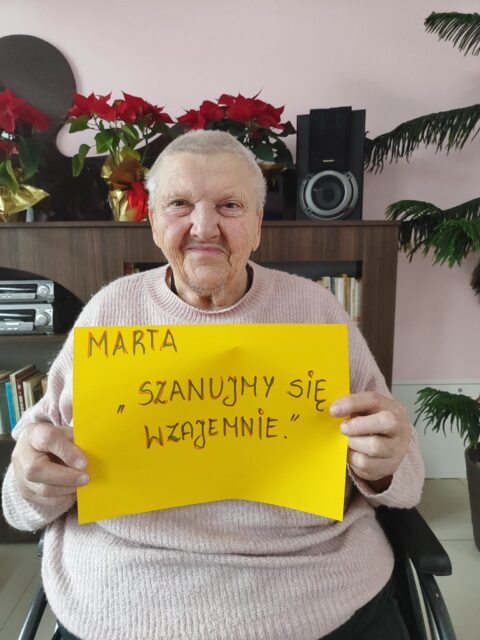 MARTA
„SZANUJMY SIĘ
WZAJEMNIE."